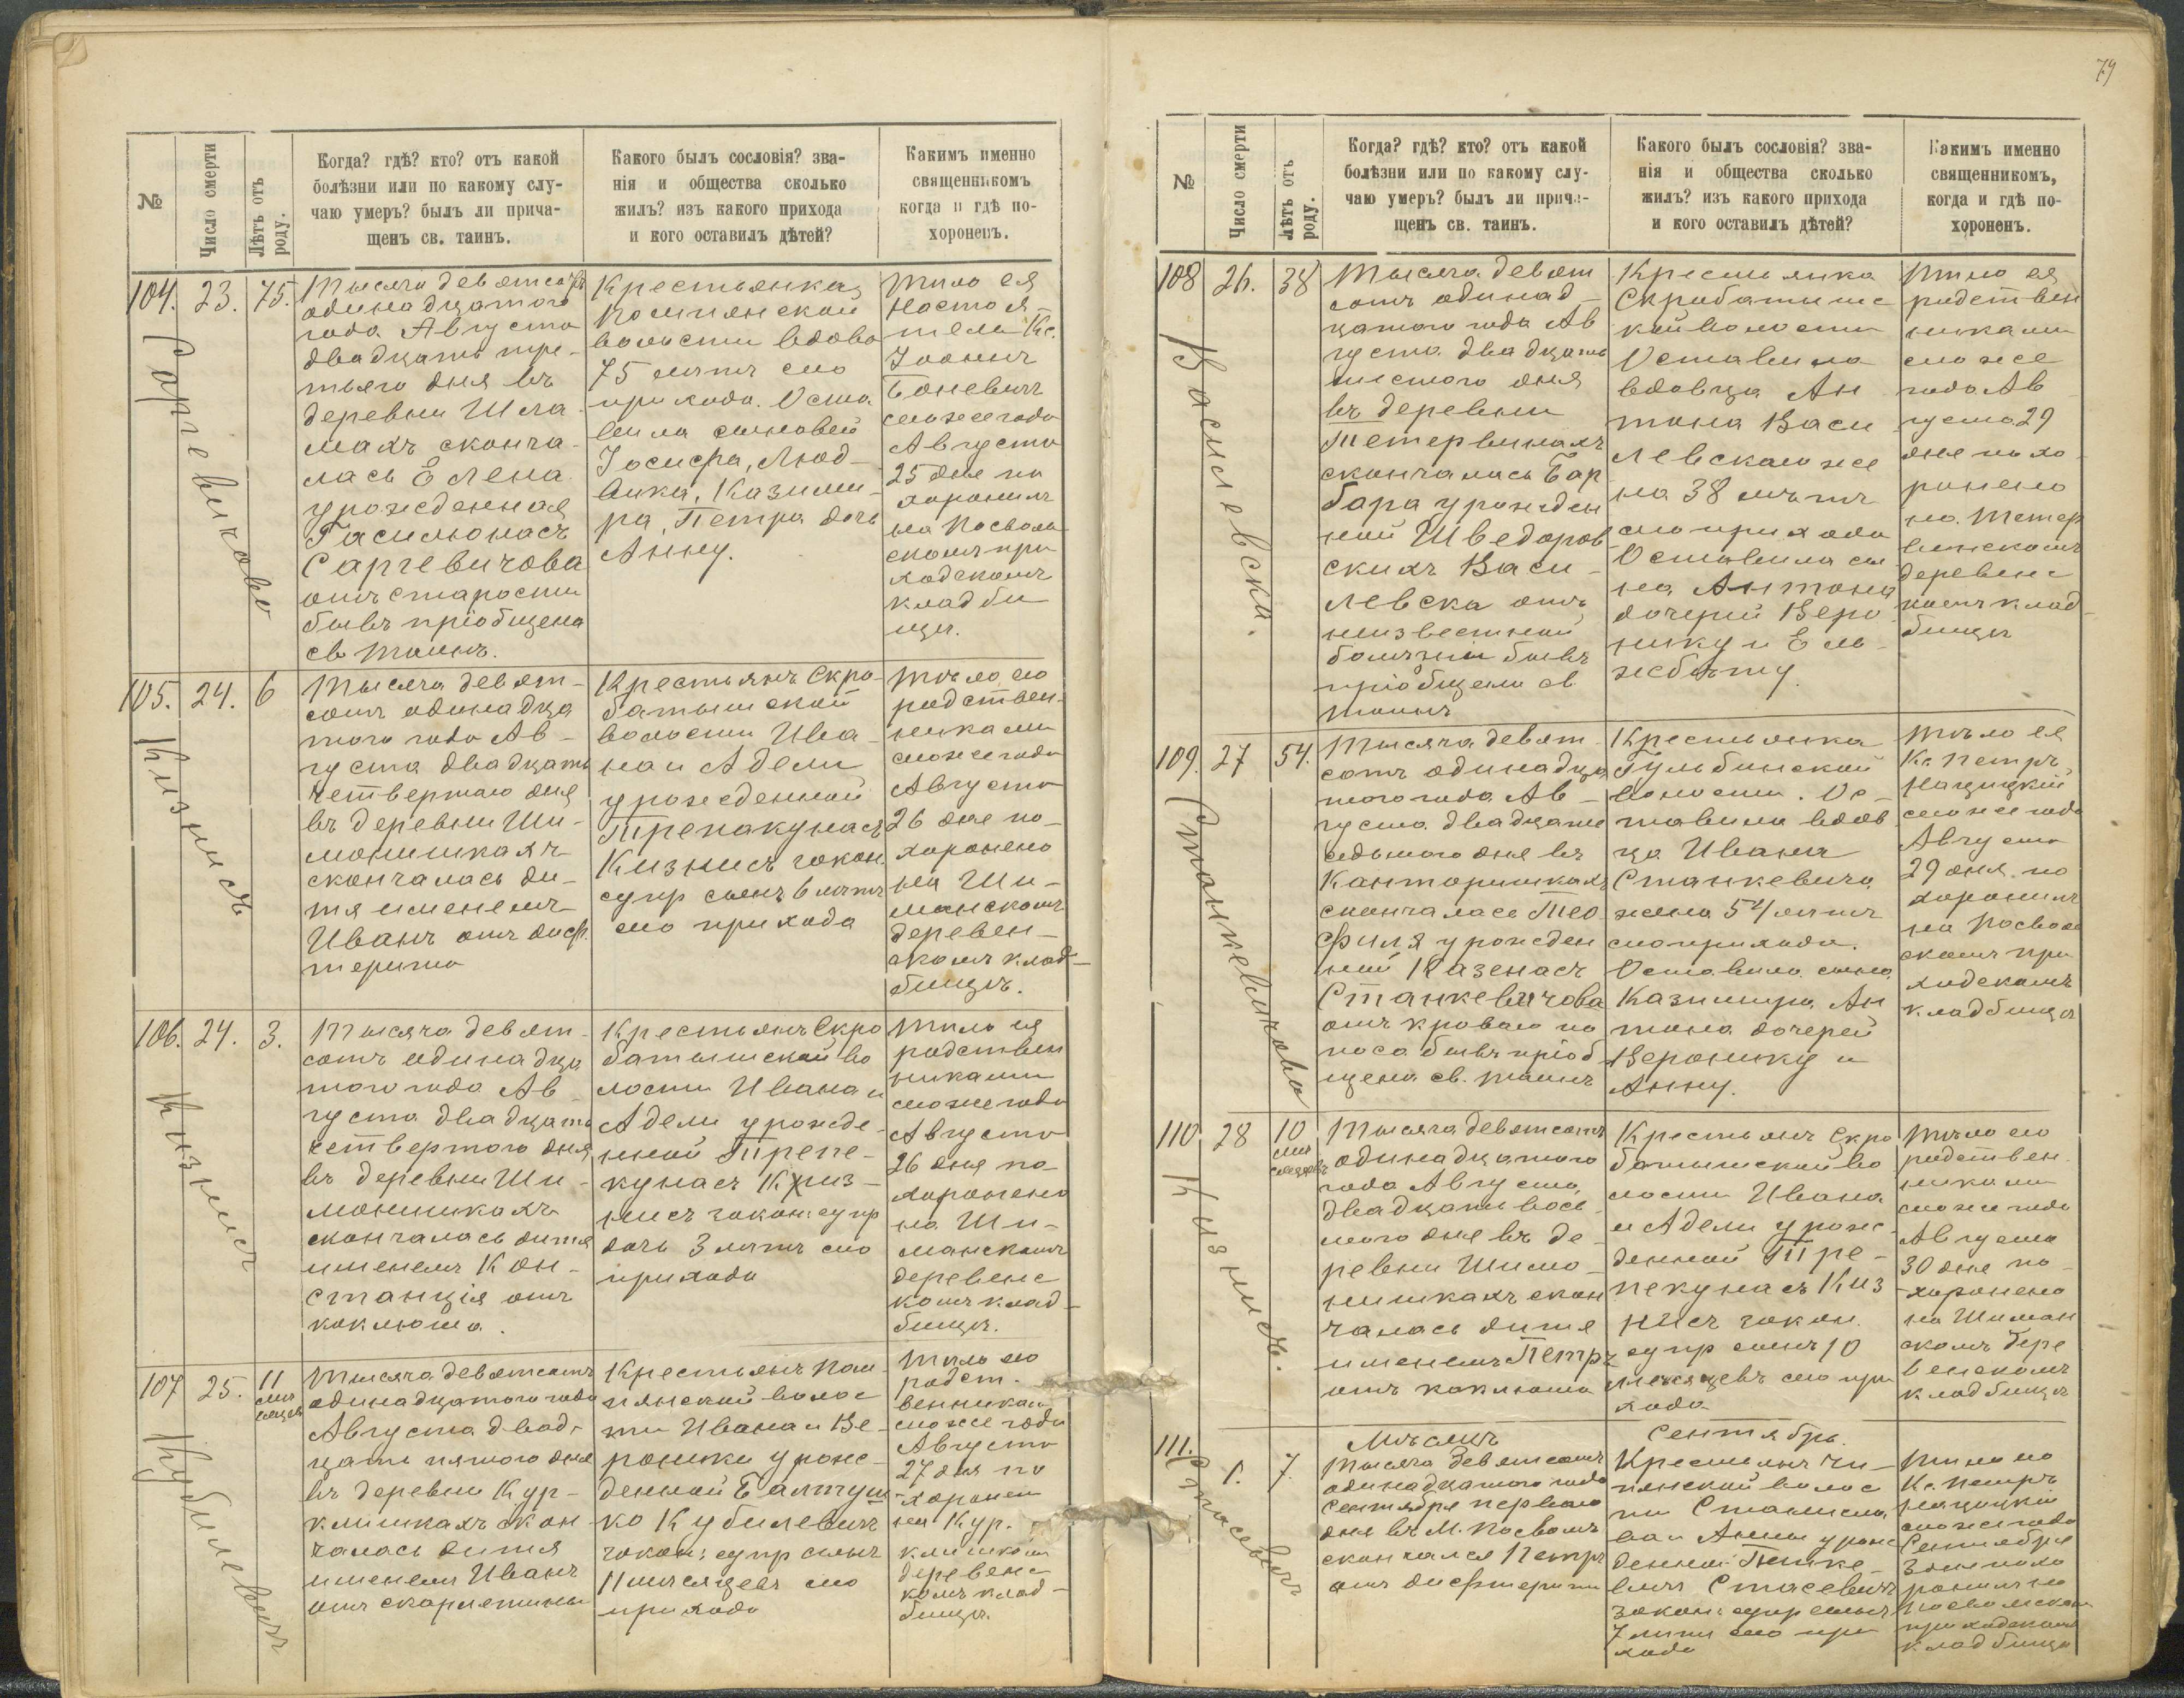 79
№
Число смерти
Лѣтъ отъ роду.
Когда? гдѣ? кто? отъ какой
болѣзни или по какому слу-
чаю умеръ? былъ ли прича-
щенъ св. таинъ.
Какого былъ сословія? зва-
нія и общества сколько
жилъ? изъ какого прихода
и кого оставилъ дѣтей?
Какимъ именно
священникомъ
когда и гдѣ по-
хороненъ.
104.
Саргевичово
23.
75.
Тысяча девятсотъ
одинадцатого
года Августа
двадцать тре-
тьяго дня въ
деревни Шла-
махъ сконча-
лась Елена
урожденная
Гасилюнасъ
Саргевичова
отъ старости
бывъ пріобщена
св. Таинъ.
Крестьянка
Компянской
волости вдова
75 лѣтъ сю
прихода. Оста
вила сыновей
Іосифа, Люд-
вика, Казими-
ра, Петра дочь
Анну.
Тѣло ея
Настоя-
тель Кс.
Іоаннъ
Боневичъ
сюжегода
Августа
25 дня по
хоронилъ
на Посволь
скомъ при
ходскомъ
кладби
щѣ.
105.
Кизнисъ
24.
6
Тысяча девят-
сотъ одинадца
того года Ав-
густа двадцать
четвертаго дня
въ деревни Ши-
монишкахъ
скончалась ди-
тя именемъ
Иванъ отъ диф
терита
Крестьянъ Скро-
батышской
волости Ива-
на и Адели
урожденной
Трепакунасъ
Кизнисъ закон.
супр сынъ 6 лѣтъ
сю прихода
Тѣло ею
родствен-
никами
сюжегода
Августа
26 дня по-
хоронено
на Ши-
манскомъ
деревен-
скомъ клад-
бищѣ.
106.
Кизнисъ
24.
3.
Тысяча девят-
сотъ одинадца
того года Ав-
густа двадцать
четвертого дня
въ деревни Ши-
монишкахъ
скончалась дитя
именемъ Кон-
станція отъ
коклюша.
Крестьянъ Скро
батышской во
лости Ивана и
Адели урожде-
нной Трепе-
кунасъ Киз-
нисъ закон: супр
дочь 3 лѣтъ сю
прихода
Тѣло ея
родствен
никами
сюжегода
Августа
26 дня по-
хоронено
на Ши-
манскомъ
деревенс
комъ клад-
бищѣ.
107
Кубилевичъ
25.
11
мѣ
сяцевъ
Тысяча девятсотъ
одинадцатого года
Августа двад-
цать пятого дня
въ деревни Кур-
клишкахъ скон
чалась дитя
именемъ Иванъ
отъ скарлетины
Крестьянъ Пом-
пянской волос
ти Ивана и Ве-
роники урож-
денной Балтуш
ко Кубилевичъ
закон: супр сынъ
11 мѣсяцевъ сю
прихода
Тѣло ею
родст-
венникам
сюже года
Августа
27 дня по
хоронен
на Кур-
клишком
деревенс
комъ клад-
бищѣ.
№
Число смерти
Лѣтъ отъ роду.
Когда? гдѣ? кто? отъ какой
болѣзни или по какому слу-
чаю умеръ? былъ ли прича-
щенъ св. таинъ.
Какого былъ сословія? зва-
нія и общества сколько
жилъ? изъ какого прихода
и кого оставилъ дѣтей?
Какимъ именно
священникомъ,
когда и гдѣ по-
хороненъ.
108
Василевски.
26.
38
Тысяча девят
сотъ одинад-
цатого года Ав
густа двадцать
шестого дня
въ деревни
Тетервинахъ
скончалась Бар
бара урожден
ной Шведоров
скихъ Васи-
левска отъ
неизвестной
болѣзни бывъ
пріобщена св.
Таинъ
Крестьянка
Скробатышс
кой волости
Оставила
вдовца Ан
тона Васи
левскаго же
на 38 лѣтъ
сюприхода
Оставила сы
на Антона
дочерей Веро
нику и Ель-
жбѣту.
Тѣло ея
родствен
никами
сюже
года Ав
густа 29
дня похо
ронено
на Тетер
винскомъ
деревенс
комъ клад-
бищѣ
109.
Станкевичова
27
54.
Тысяча девят
сотъ одинадца
того года Ав-
густа двадцать
седьмого дня въ
Канторишкахъ
скончалась Тео
филя урожден
ной Казенасъ
Станкевичова
отъ кроваго по
носа бывъ пріоб
щена св. Таинъ
Крестьянка
Гульбинской
волости. Ос-
тавила вдов
ца Ивана
Станкевича
жена 54 лѣтъ
сюприхода.
Оставила сына
Казимира, Ан
тона дочерей
Веронику и
Анну.
Тѣло ея
Кс. Петръ
Нацицкій
сюжегода
Августа
29 дня по
хоронилъ
на Посволь
скомъ при
ходскомъ
кладбищѣ
110
Кизнисъ.
28
10
мѣ
сяцевъ
Тысяча девятсотъ
одинадцатого
года Августа
двадцать вось-
мого дня въ де-
ревни Шимо-
нишкахъ скон
чалась дитя
именемъ Петръ
отъ коклюша
Крестьянъ Скро
батышской во
лости Ивана
и Адели урож-
денной Тре-
пекунасъ Киз
нисъ закон.
супр сынъ 10
мѣсяцевъ сю при
хода
Тѣло ею
родствен-
никами
сюжегода
Августа
30 дня по-
хоронено
на Шиман
скомъ дере
венскомъ
кладбищѣ
Мѣсяцъ
Сентябрь.
111.
Стасевичъ
1.
7.
Тысяча девятсотъ
одинадцатого года
Сентября первого
дня въ М. Посволь
скончался Петръ
отъ дисфтерита
Крестьянъ
пянской волос
ти Станисла
ва и Анны урож
денной
Стасевичъ
закон: супр сынъ
7 лѣтъ сю при
хода
Тѣло ею
Кс. Петръ
Нацицкій
сюжегода
Сентября
3 дня похо
ронилъ на
Посвольском
приходскомъ
кладбищѣ